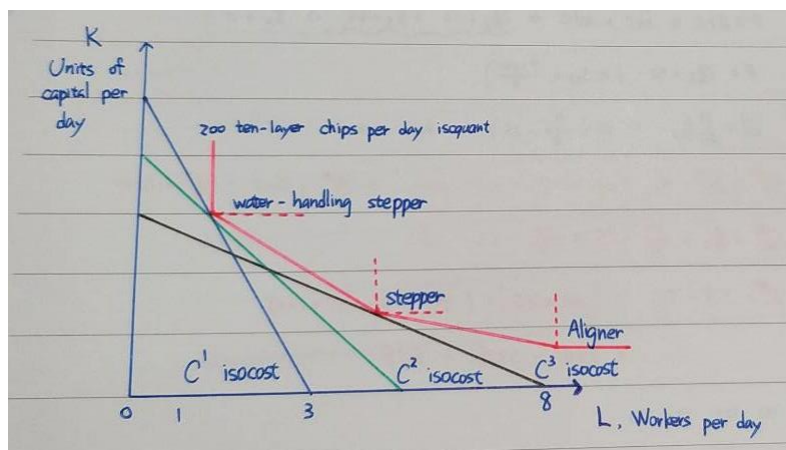 K
Units of
capital per
day
200 ten-layer chips per day isoquant
water-handling stepper
stepper
Aligner
C¹ isocost
C² isocost
C³ isocost
0 1 3 8
L, Workers per day